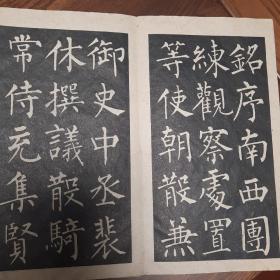 銘序南西團
練觀察處置
等使朝散兼
御史中丞裴
休撰議散騎
常侍充集賢